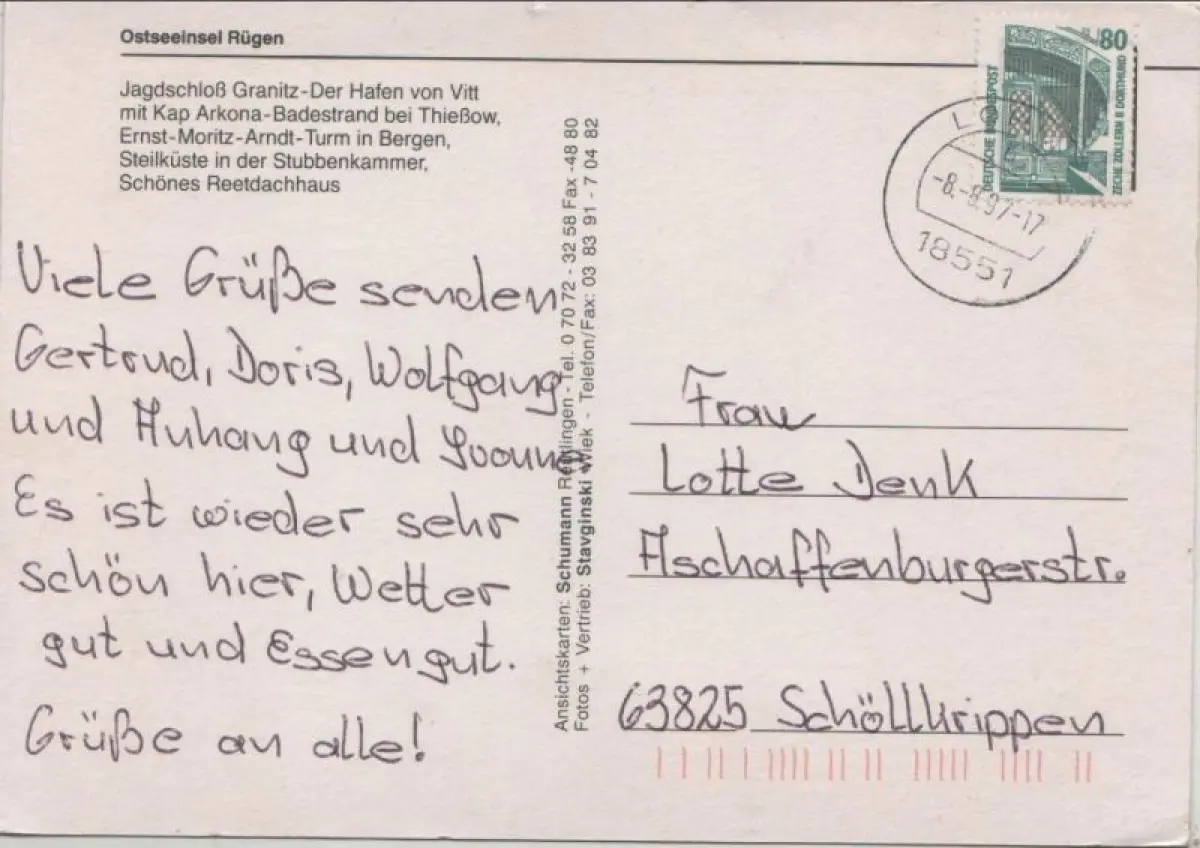 Ostseeinsel Rügen
Jagdschloß Granitz-Der Hafen von Vitt
mit Kap Arkona-Badestrand bei Thießow,
Ernst-Moritz-Arndt-Turm in Bergen,
Steilküste in der Stubbenkammer,
Schönes Reetdachhaus
Viele Grüße senden
Gertrud, Doris, Wolfgang
und Anhang und Yvonne
Es ist wieder sehr
schön hier, Wetter
gut und Essen gut.
Grüße an alle!
Ansichtskarten: Schumann Reutlingen - Tel. 0 70 72 - 32 58 Fax -48 80
Fotos + Vertrieb: Stavginski Wiek - Telefon/Fax: 03 83 91 - 7 04 82
80
DEUTSCHE BUNDESPOST
ZECHE ZOLLERN II DORTMUND
-8.-8.97-17
18551
Frau
Lotte Denk
Aschaffenburgerstr.
63825 Schöllkrippen